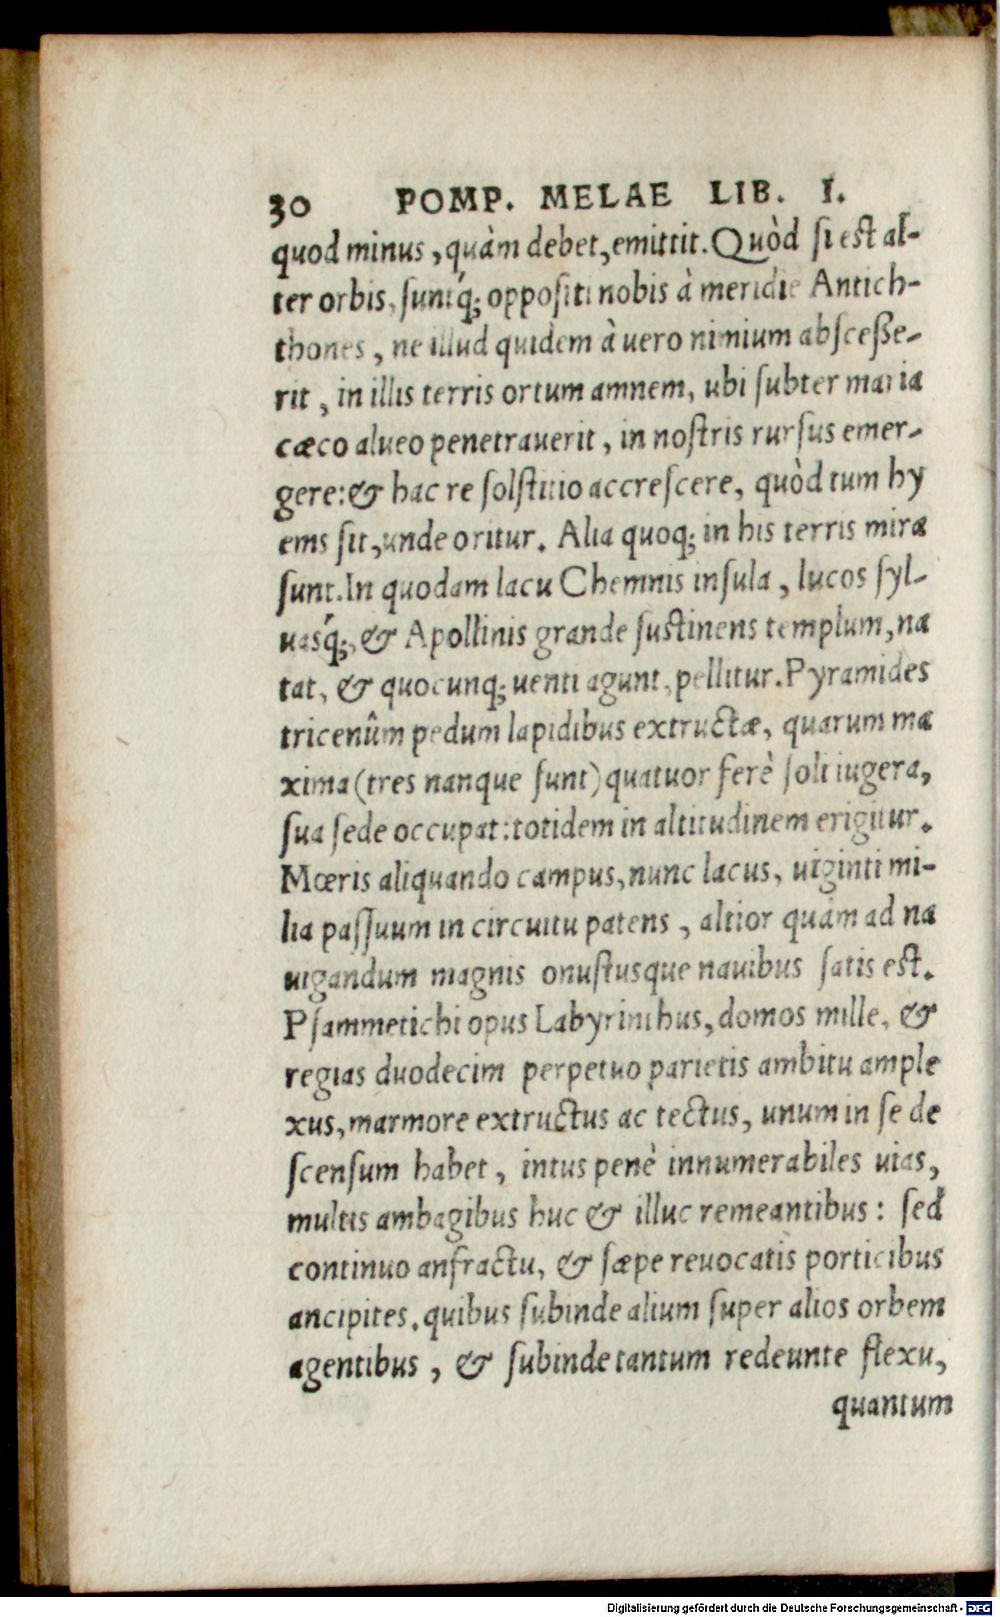 30 POMP. MELAE LIB. I.
quod minus, quàm debet, emittit. Quòd si est al-
ter orbis, suntq́; oppositi nobis à meridie Antich-
thones, ne illud quidem à uero nimium abscesse-
rit, in illis terris ortum amnem, ubi subter maria
cæco alueo penetrauerit, in nostris rursus emer-
gere: & hac re solstitio accrescere, quòd tum hy
ems sit, unde oritur. Alia quoq; in his terris mira
sunt. In quodam lacu Chemnis insula, lucos syl-
uasq́;, & Apollinis grande sustinens templum, na
tat, & quocunq; uenti agunt, pellitur. Pyramides
tricenûm pedum lapidibus extructæ, quarum ma
xima (tres nanque sunt) quatuor ferè soli iugera,
sua sede occupat: totidem in altitudinem erigitur.
Mœris aliquando campus, nunc lacus, uiginti mi-
lia passuum in circuitu patens, altior quàm ad na
uigandum magnis onustusque nauibus satis est.
Psammetichi opus Labyrinthus, domos mille, &
regias duodecim perpetuo parietis ambitu ample
xus, marmore extructus ac tectus, unum in se de
scensum habet, intus penè innumerabiles uias,
multis ambagibus huc & illuc remeantibus: sed
continuo anfractu, & sæpe reuocatis porticibus
ancipites. quibus subinde alium super alios orbem
agentibus, & subinde tantum redeunte flexu,
quantum
Digitalisierung gefördert durch die Deutsche Forschungsgemeinschaft - DFG